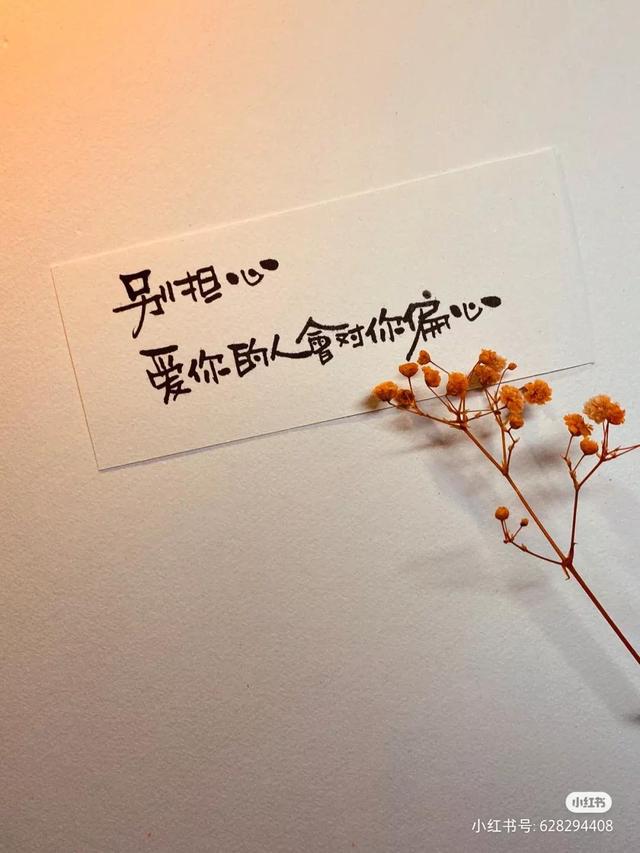 别担心
爱你的人會对你偏心
小红书
小红书号: 628294408